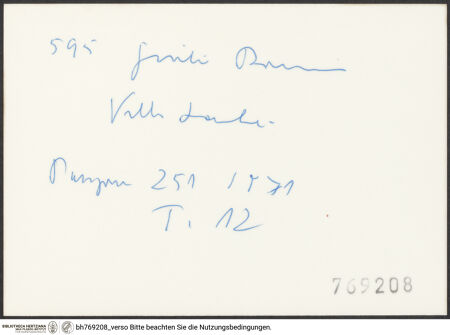 595 Giulio Romano
Villa Lante
Paragone 251 1971
T. 12
769208
BIBLIOTHECA HERTZIANA
bh769208_verso Bitte beachten Sie die Nutzungsbedingungen.